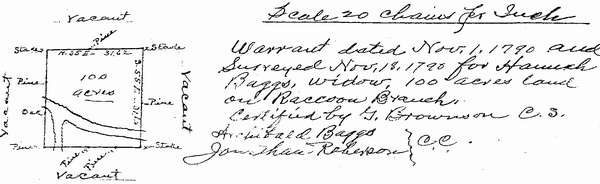 Scale 20 chains per Inch
Vacant
Stake
Pine
Stake
N.55E - 31.62
Pine
100
acres
S 35 E 31.62
Pine
Vacant
Vacant
Oak
Pine
Pine
Pine
Stake
Vacant
Warrant dated Nov. 1, 1790 and
Surveyed Nov. 18, 1790 for Hannah
Baggs, Widow, 100 acres land
on Raccoon Branch.
Certified by J. Brownson C.S.
Archibald Baggs
Jonathan Roberson
C.C.